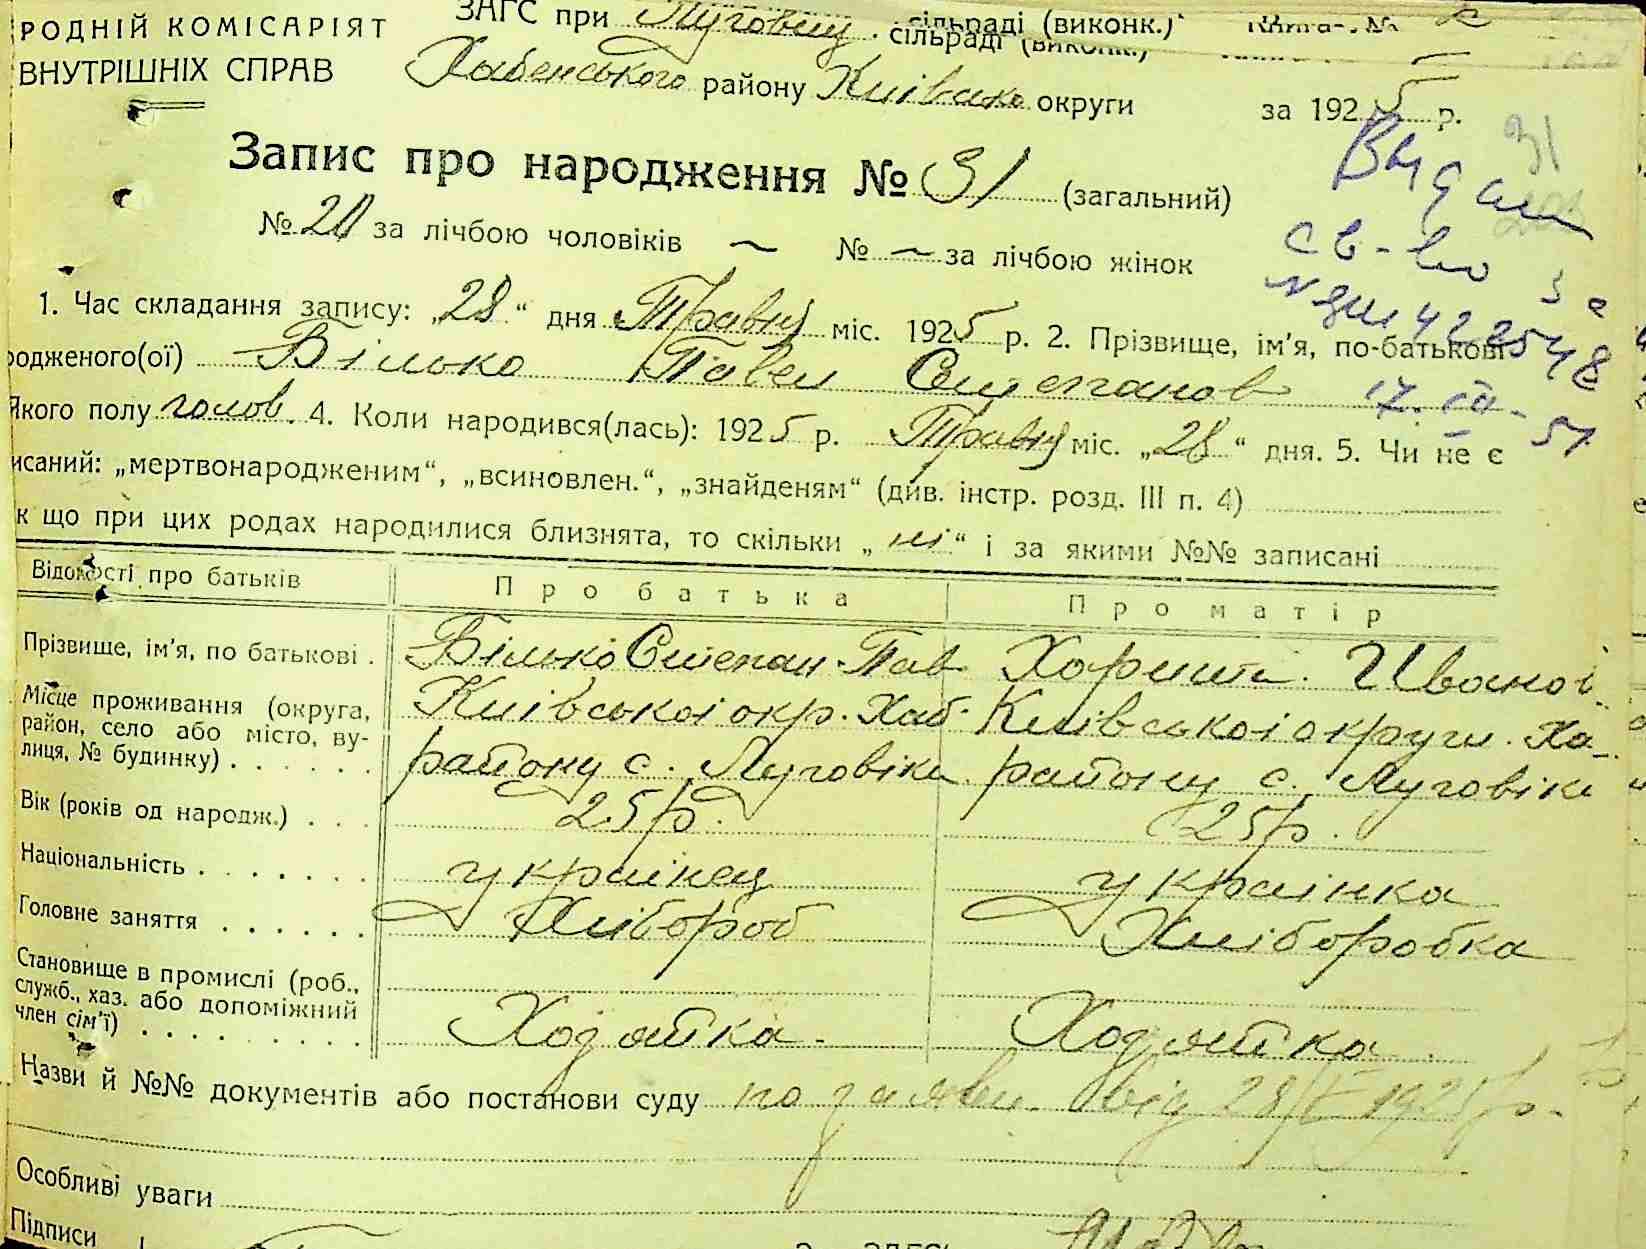 РОДНІЙ КОМІСАРІЯТ
ВНУТРІШНІХ СПРАВ
ЗАГС при Луговиц. сільраді (виконк.)
сільраді (виконк.)
Хабенського району Київсько округи за 1925 р.
Запис про народження № 31 (загальний)
31
№ 20 за лічбою чоловіків ~ № ~ за лічбою жінок
Выдан
св-во
17.III-51
1. Час складання запису: „28“ дня Травня міс. 1925 р. 2. Прізвище, ім'я, по-батькові
родженого(ої) Білько Павел Степанов
Якого полу голов. 4. Коли народився(лась): 1925 р. Травня міс. „28“ дня. 5. Чи не є
исаний: „мертвонародженим“, „всиновлен.“, „знайденям“ (див. інстр. розд. III п. 4)
к що при цих родах народилися близнята, то скільки „ні“ і за якими №№ записані
Відомості про батьків Про батька Про матір
Прізвище, ім'я, по батькові . Білько Степан Пав Хорити. Иванов
Місце проживання (округа, район, село або місто, вулиця, № будинку) . . . . . . Київської окр. Хаб. Київської округи. Ха
району с. Луговіки району с. Луговіки
Вік (років од народж.) . . . 25 р. 25 р.
Національність . . . . . . . українец українка
Головне заняття . . . . . . Хлібороб Хліборобка
Становище в промислі (роб., служб., хаз. або допоміжний член сім'ї) . . . . . . . . . Ходатка. Ходатка.
Назви й №№ документів або постанови суду по заяви від 28/V 1925 р.
Особливі уваги
Підписи